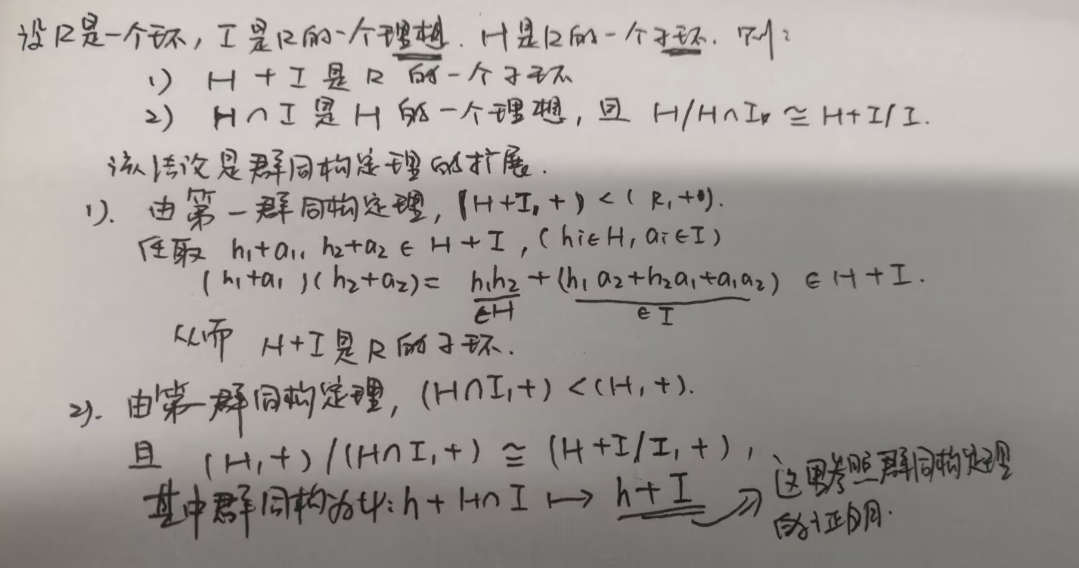 设R是一个环，I是R的一个理想．H是R的一个子环．则：
1) H + I 是 R 的一个子环
2) H∩I 是 H 的一个理想，且 H/H∩I ≅ H+I/I.
该结论是群同构定理的扩展．
1). 由第一群同构定理，(H+I, +) < (R, +).
任取 h₁+a₁, h₂+a₂ ∈ H + I , (hi∈H, ai∈I)
(h₁+a₁)(h₂+a₂) = h₁h₂ + (h₁a₂+h₂a₁+a₁a₂) ∈ H+I.
∈H ∈I
从而 H+I是R的子环.
2). 由第一群同构定理，(H∩I, +) < (H, +).
且 (H, +)/(H∩I, +) ≅ (H+I/I, +) ,
其中群同构为φ: h + H∩I ↦ h+I
这里参照群同构定理
的证明.